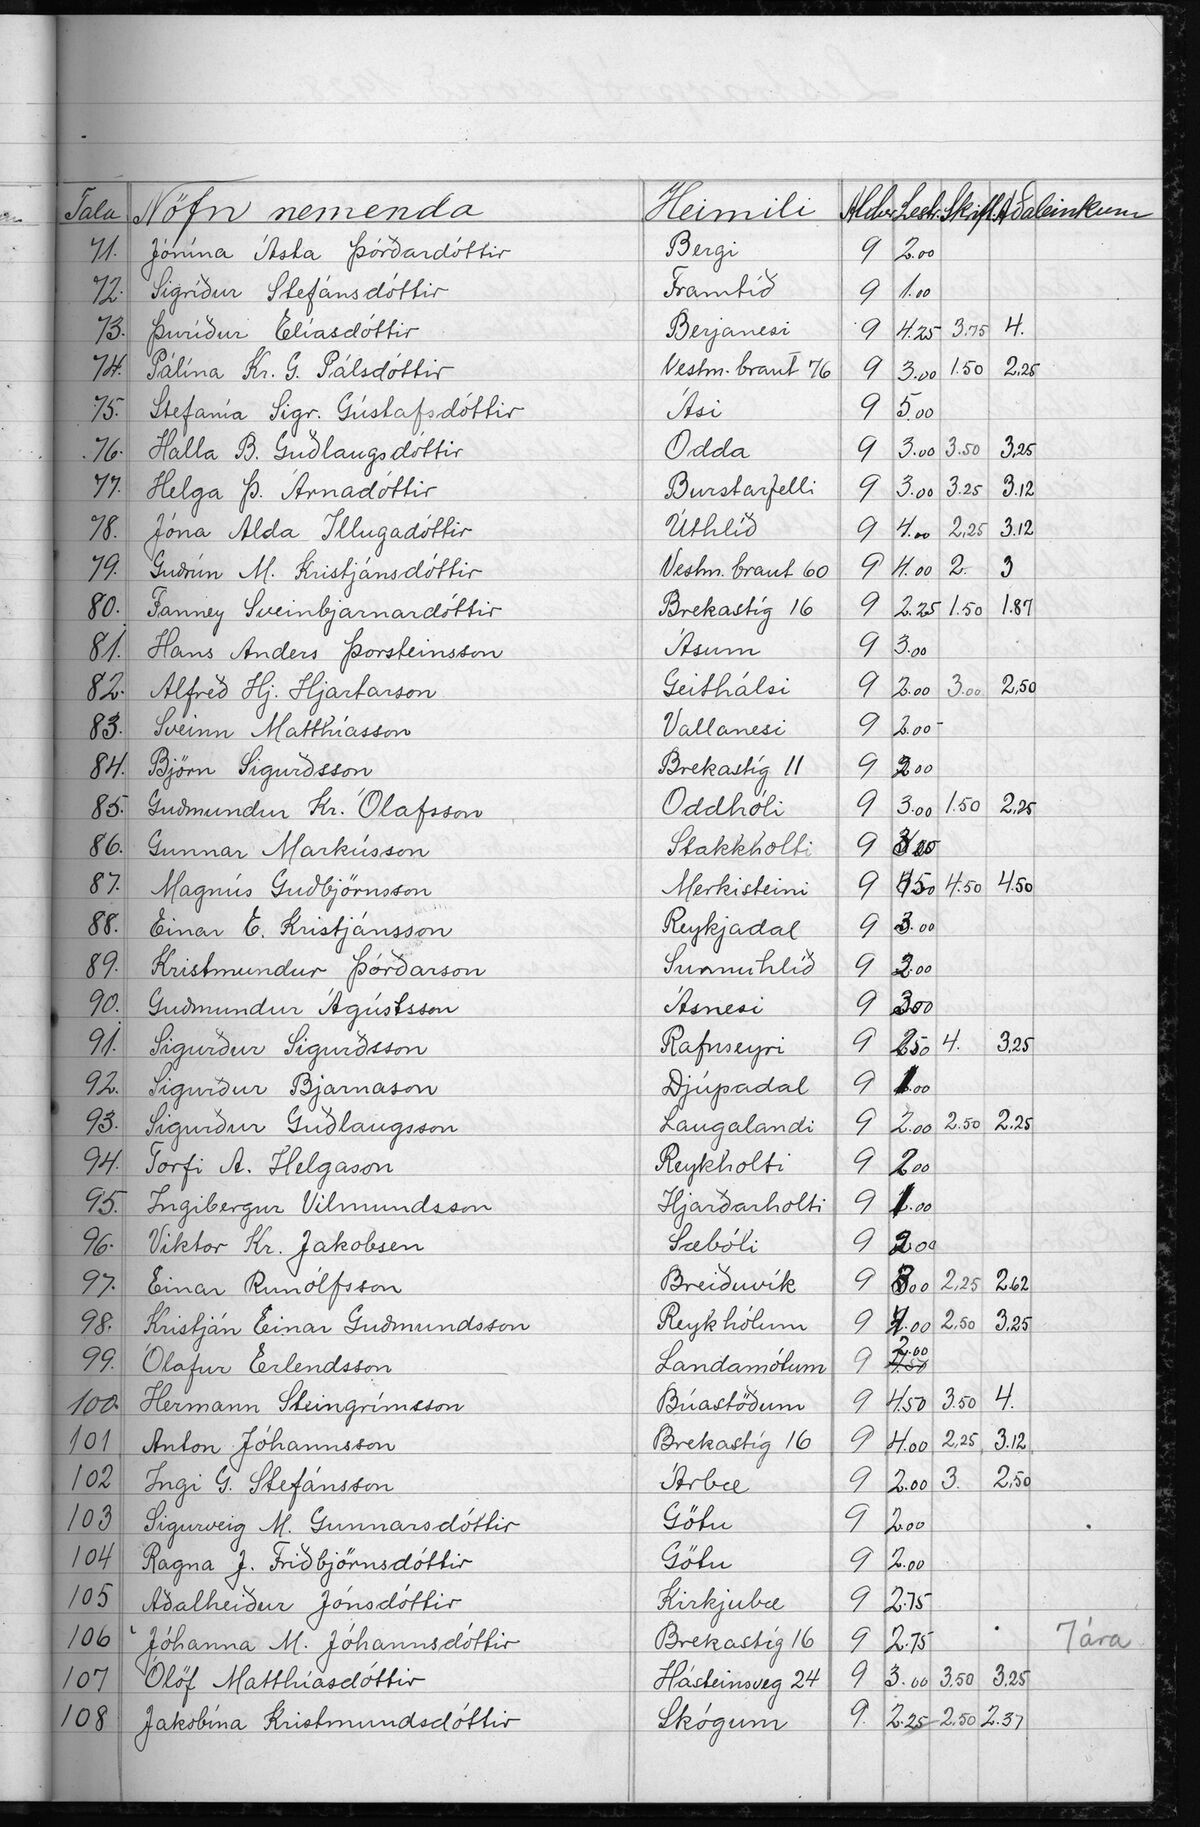 Tala Nöfn nemenda Heimili Aldur Lestr. Skrift. Aðaleinkunn
71. Jónína Ásta Þórðardóttir Bergi 9 2.00
72. Sigríður Stefánsdóttir Framtíð 9 1.00
73. Þuríður Elíasdóttir Berjanesi 9 4.25 3.75 4.
74. Pálína Kr. G. Pálsdóttir Vestm.braut 76 9 3.00 1.50 2.25
75. Stefanía Sigr. Gústafsdóttir Ási 9 5.00
76. Halla B. Guðlaugsdóttir Odda 9 3.00 3.50 3.25
77. Helga Þ. Árnadóttir Burstarfelli 9 3.00 3.25 3.12
78. Jóna Alda Illugadóttir Úthlíð 9 4.00 2.25 3.12
79. Guðrún M. Kristjánsdóttir Vestm.braut 60 9 4.00 2. 3
80. Fanney Sveinbjarnardóttir Brekastíg 16 9 2.25 1.50 1.87
81. Hans Anders Þorsteinsson Ásum 9 3.00
82. Alfreð Hj. Hjartarson Geithálsi 9 2.00 3.00 2.50
83. Sveinn Matthíasson Vallanesi 9 2.00
84. Björn Sigurðsson Brekastíg 11 9 00
85. Guðmundur Kr. Ólafsson Oddhóli 9 3.00 1.50 2.25
86. Gunnar Markússon Stakkholti 9
87. Magnús Guðbjörnsson Merkisteini 9 4.50 4.50 4.50
88. Einar E. Kristjánsson Reykjadal 9 3.00
89. Kristmundur Þórðarson Sunnuhlíð 9 2.00
90. Guðmundur Ágústsson Ásnesi 9 3.00
91. Sigurður Sigurðsson Rafnseyri 9 2.50 4. 3.25
92. Sigurður Bjarnason Djúpadal 9 1.00
93. Sigurður Guðlaugsson Laugalandi 9 2.00 2.50 2.25
94. Torfi A. Helgason Reykholti 9 2.00
95. Ingibergur Vilmundsson Hjarðarholti 9 1.00
96. Viktor Kr. Jakobsen Sæbóli 9 2.00
97. Einar Runólfsson Breiðuvík 9 3.00 2.25 2.62
98. Kristján Einar Guðmundsson Reykhólum 9 4.00 2.50 3.25
99. Ólafur Erlendsson Landamótum 9 2.00
100. Hermann Steingrímsson Búastöðum 9 4.50 3.50 4.
101 Anton Jóhannsson Brekastíg 16 9 4.00 2.25 3.12
102 Ingi G. Stefánsson Árbæ 9 2.00 3. 2.50
103 Sigurveig M. Gunnarsdóttir Götu 9 2.00
104 Ragna J. Friðbjörnsdóttir Götu 9 2.00
105 Aðalheiður Jónsdóttir Kirkjubæ 9 2.75
106 Jóhanna M. Jóhannsdóttir Brekastíg 16 9 2.75 7 ára
107 Ólöf Matthíasdóttir Hásteinsveg 24 9 3.00 3.50 3.25
108 Jakobína Kristmundsdóttir Skógum 9. 2.25 2.50 2.37